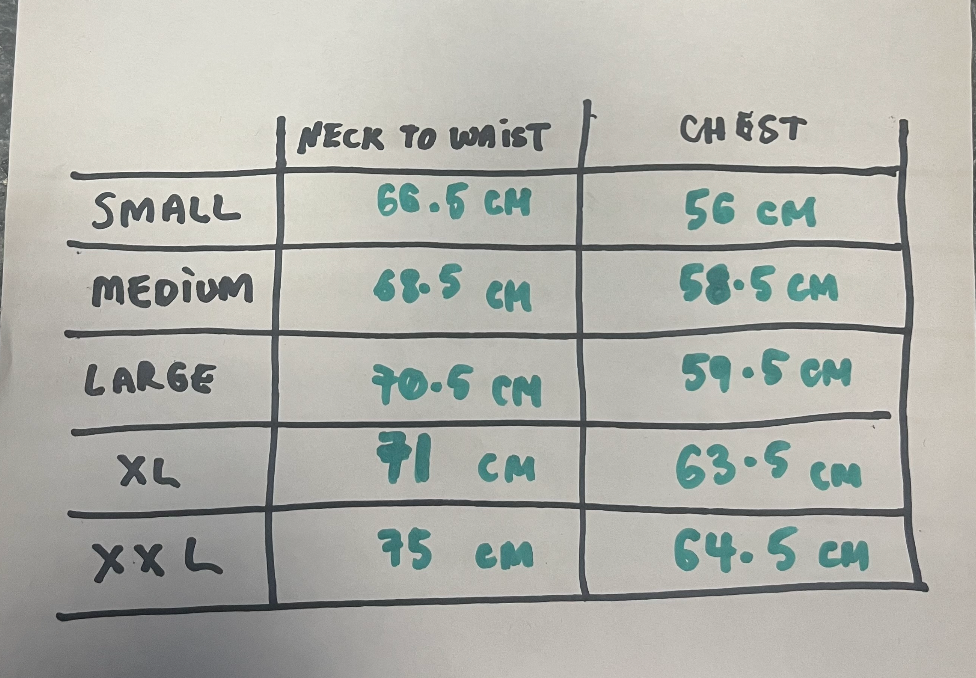 NECK TO WAIST CHEST
SMALL 66.5 CM 56 CM
MEDIUM 68.5 CM 58.5 CM
LARGE 70.5 CM 59.5 CM
XL 71 CM 63.5 CM
XXL 75 CM 64.5 CM